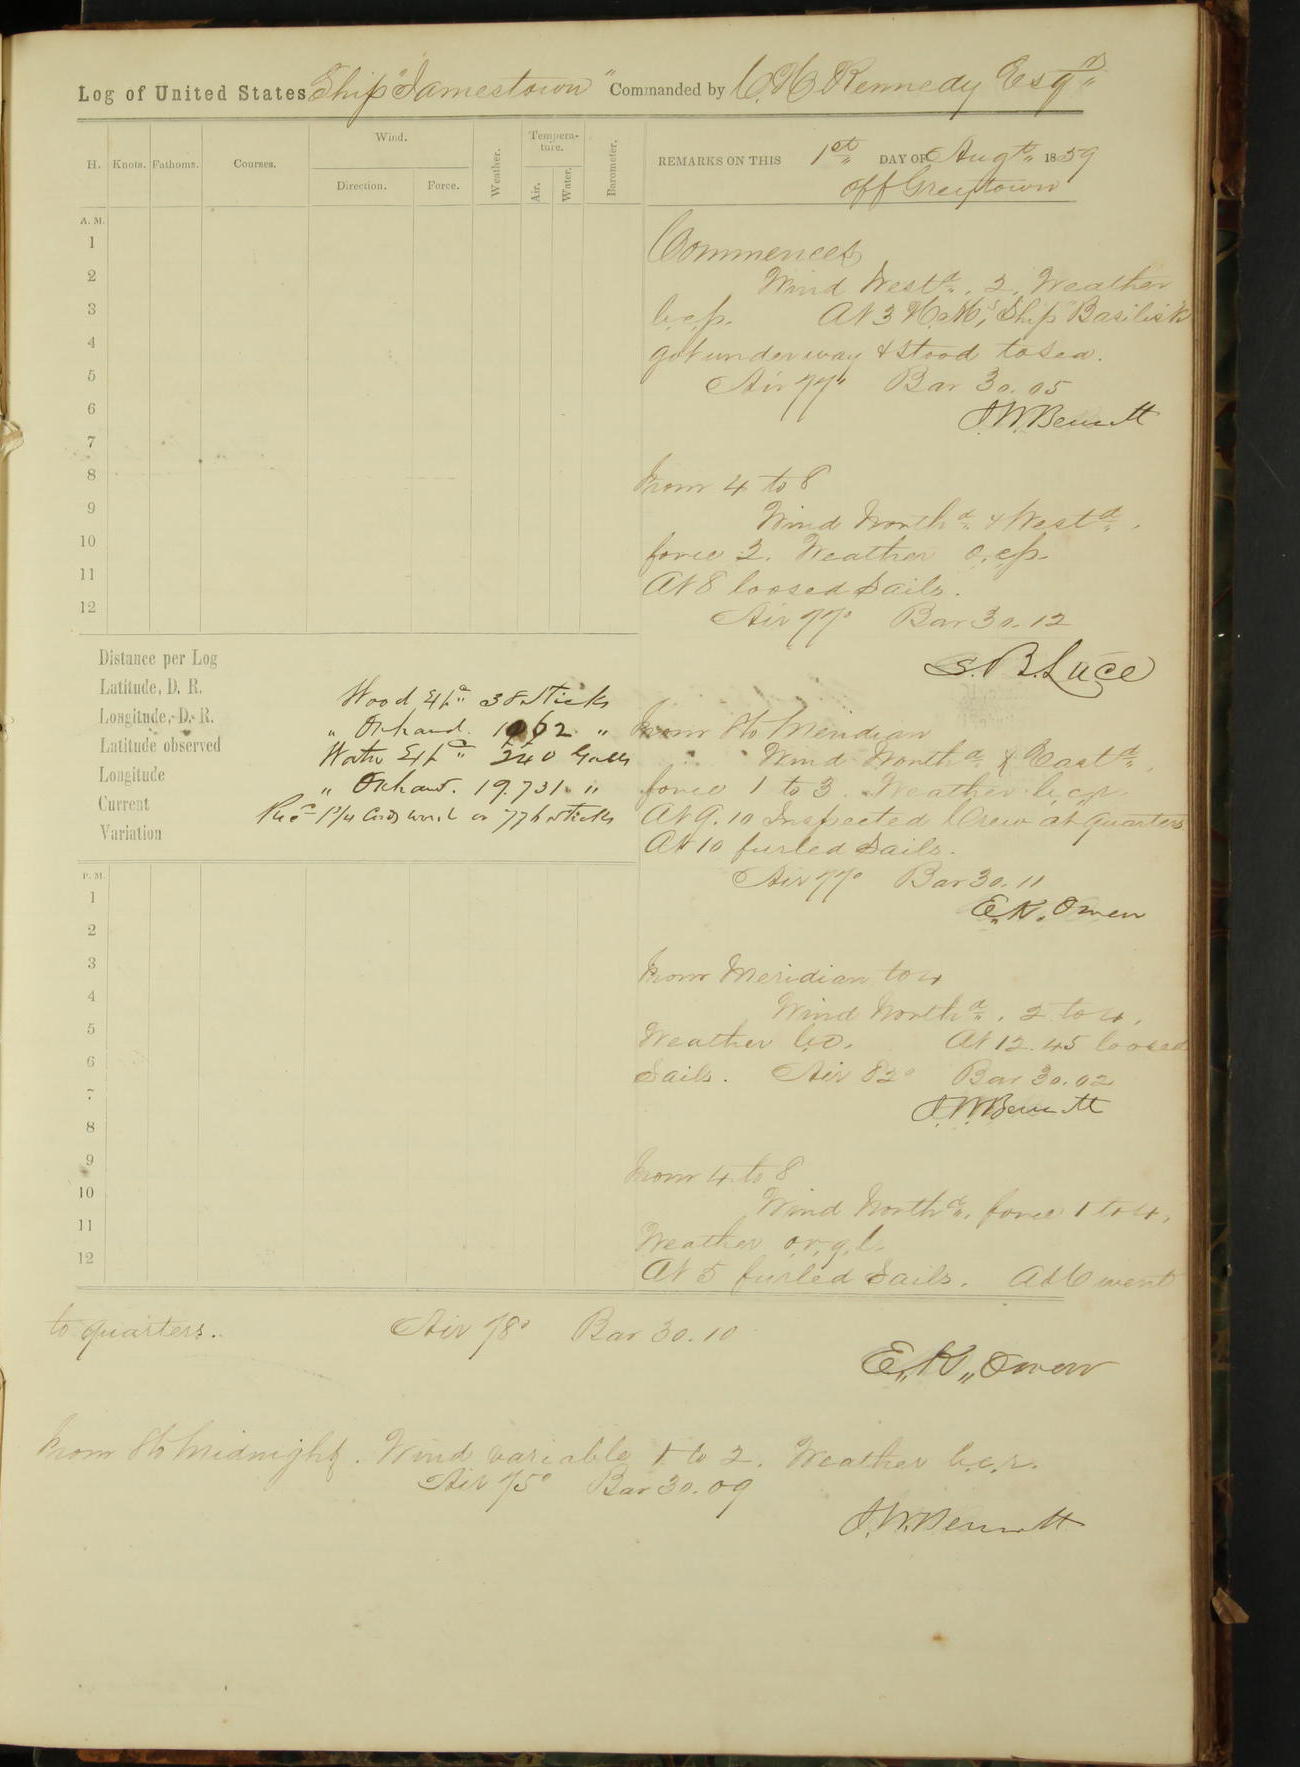 Log of United States Ship "Jamestown" Commanded by C. H. Kennedy Esqr
H. Knots. Fathoms. Courses. Wind. Direction. Force. Weather. Tempera-ture. Air. Water. Barometer.
REMARKS ON THIS 1st DAY OF Augt 1859
off Greytown
A. M.
1
2
3
4
5
6
7
8
9
10
11
12
Commences
Wind Westd, 2, Weather
b.c.p. At 3 H.M.'s Ship "Basilisk"
got under way & stood to sea.
Air 77° Bar 30.05
J.W. Bennett
From 4 to 8
Wind Northd & Westd,
force 2. Weather o.c.p.
At 8 loosed Sails.
Air 77° Bar 30.12
S. B. Luce
Distance per Log
Latitude, D. R.
Longitude, D. R.
Latitude observed
Longitude
Current
Variation
Wood Expd 38 Sticks
" On hand. 1062 "
Water Expd 240 Galls
" On hand. 19.731 "
Recd 1 3/4 Cords wood or 776 Sticks
From 8 to Meridian
Wind Northd & Eastd,
force 1 to 3. Weather b.c.r.
At 9.10 Inspected Crew at quarters
At 10 furled Sails.
Air 77° Bar 30.11
E. K. Owen
P. M.
1
2
3
4
5
6
7
8
9
10
11
12
From Meridian to 4
Wind Northd, 2 to 4,
Weather b.o. At 12.45 loosed
Sails. Air 82° Bar 30.02
J.W. Bennett
From 4 to 8
Wind Northd, force 1 to 4,
Weather o.r.q.l.
At 5 furled Sails. At 6 went
to quarters. Air 78° Bar 30.10
E. K. Owen
From 8 to Midnight. Wind variable 1 to 2. Weather b.c.r.
Air 75° Bar 30.09
J.W. Bennett